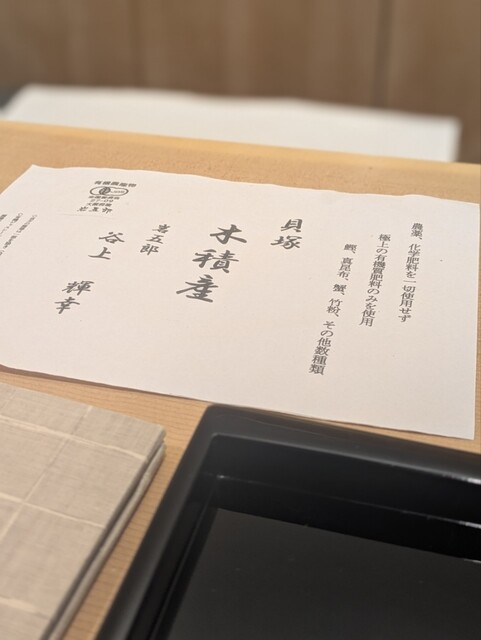 農薬、化学肥料を一切使用せず
極上の有機質肥料のみを使用
鰹、真昆布、蟹、竹粉、その他数種類
貝塚
木積産
岩五郎
谷上 輝幸
岩五郎